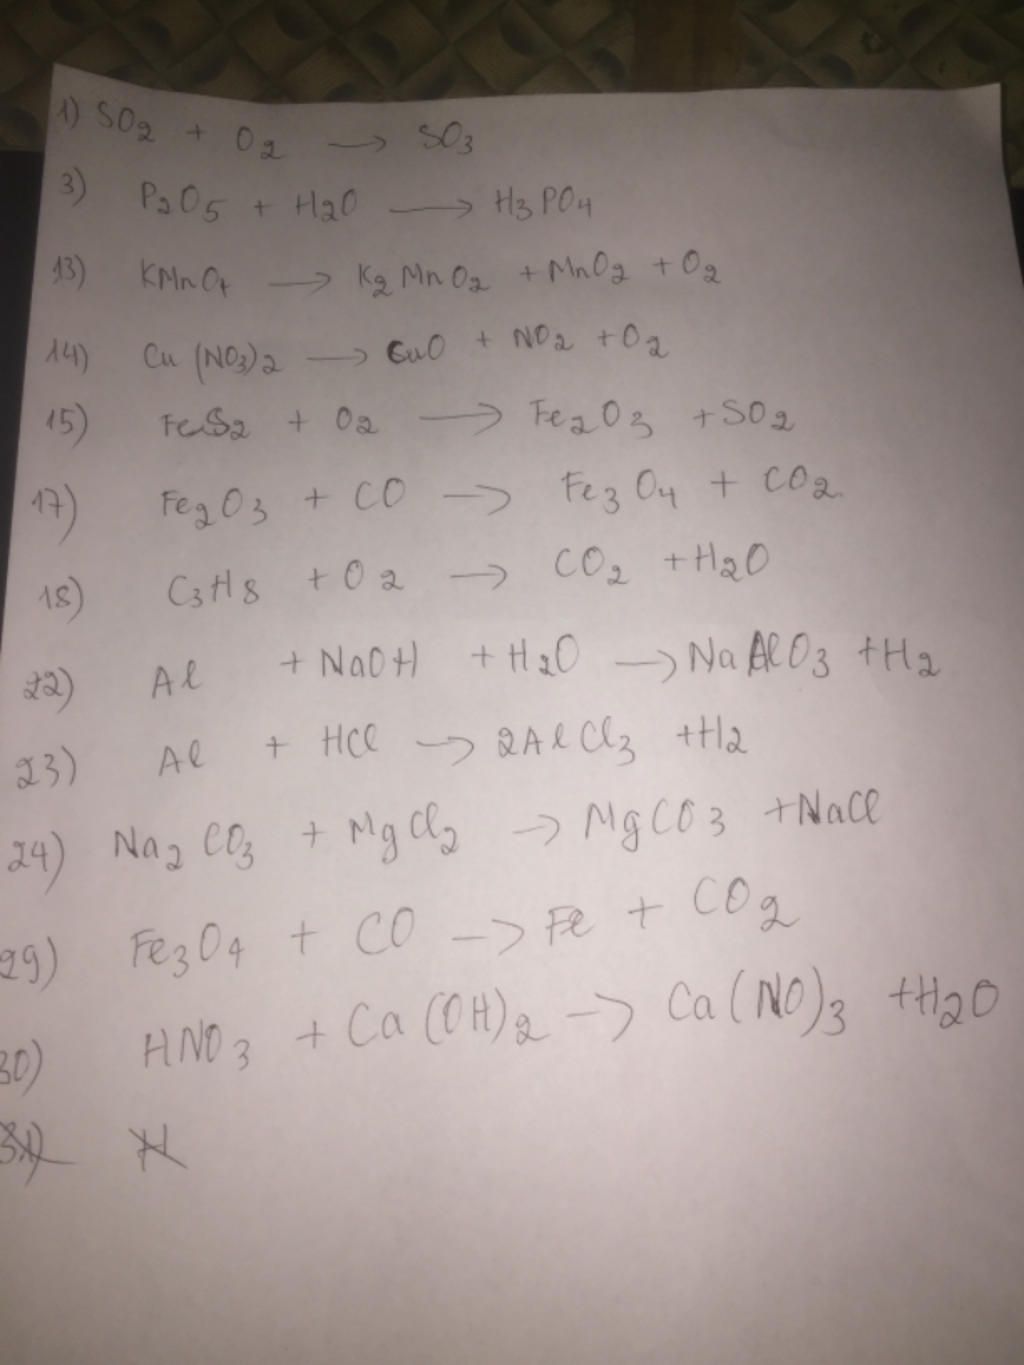 1) SO2 + O2 → SO3
3) P2O5 + H2O → H3PO4
13) KMnO4 → K2MnO2 + MnO2 + O2
14) Cu(NO3)2 → CuO + NO2 + O2
15) FeS2 + O2 → Fe2O3 + SO2
17) Fe2O3 + CO → Fe3O4 + CO2
18) C3H8 + O2 → CO2 + H2O
22) Al + NaOH + H2O → NaAlO3 + H2
23) Al + HCl → 2AlCl3 + H2
24) Na2CO3 + MgCl2 → MgCO3 + NaCl
29) Fe3O4 + CO → Fe + CO2
30) HNO3 + Ca(OH)2 → Ca(NO)3 + H2O